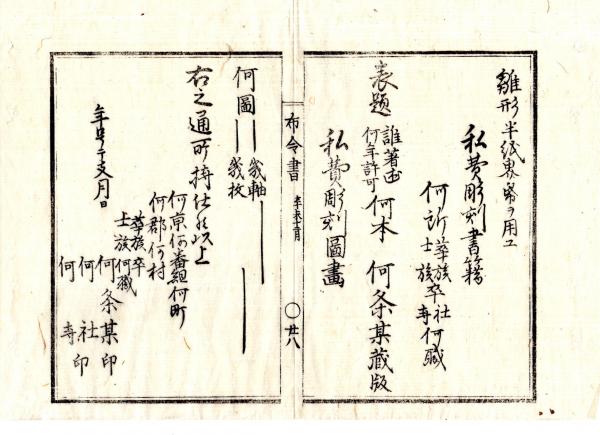 雛形半紙界紙ヲ用ユ
私費彫刻書籍
何所華族卒社何職
士族寺
表題
誰著述
何年許可
何本
何条某蔵版
私費彫刻圖畫
布令書
辛未七月
〇廿八
何圖
幾軸
幾枚
右之通所持仕候以上
何京何番組何町
何郡何村
華族卒
士族何職
何条某印
何社印
何寺印
年号干支月日